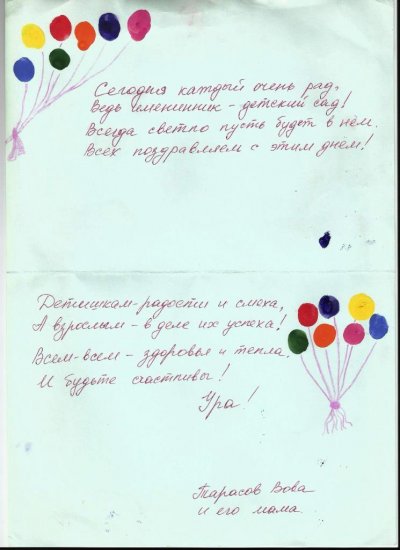 Сегодня каждый очень рад,
Ведь именинник - детский сад!
Всегда светло пусть будет в нём.
Всех поздравляем с этим днём!
Детишкам - радости и смеха,
А взрослым - в деле их успеха!
Всем-всем - здоровья и тепла.
И будьте счастливы!
Ура!
Тарасов Вова
и его мама